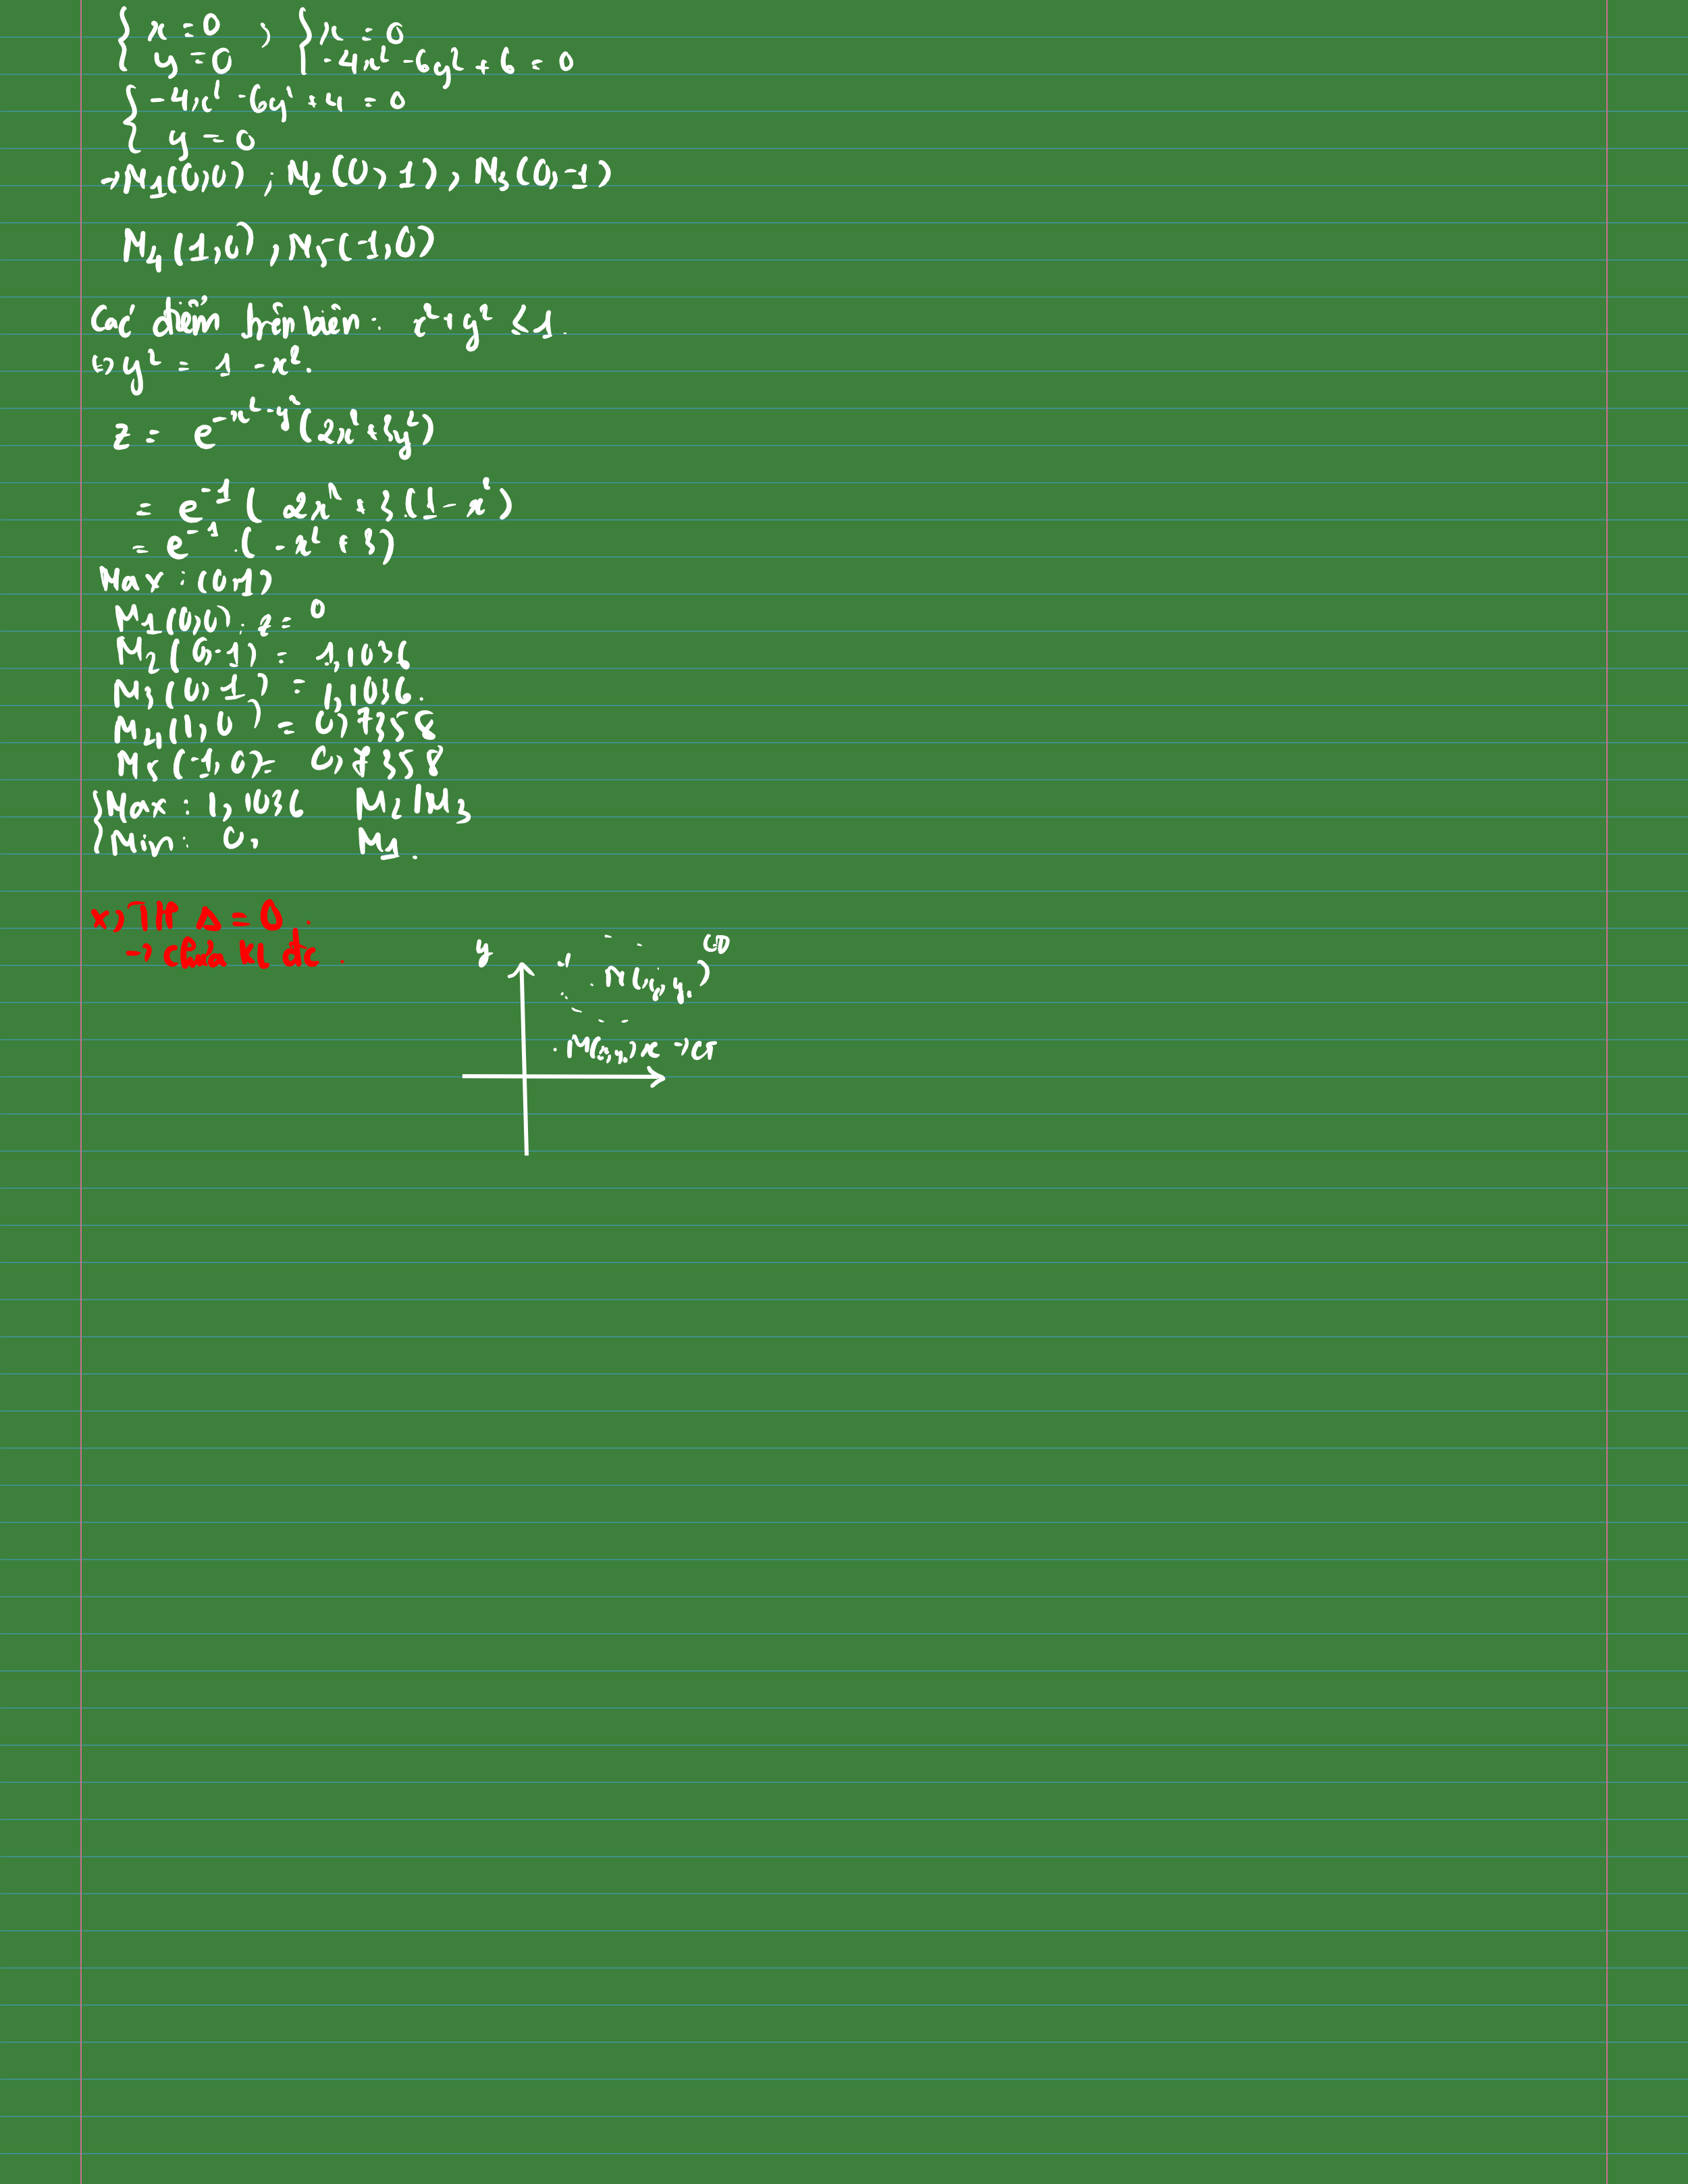 { x = 0 , { x = 0
y = 0 -4x² - 6y² + 6 = 0
{ -4x² - 6y² + 4 = 0
y = 0
→ M1(0,0) ; M2(0,1), M3(0,-1)
M4(1,0), M5(-1,0)
Các điểm trên biên: x² + y² ≤ 1.
⇔ y² = 1 - x².
z = e^{-x²-y²}(2x²+3y²)
= e^{-1}( 2x² + 3(1 - x²)
= e^{-1}.( -x² + 3)
Max : (0,1)
M1(0,0) : z = 0
M2(0,-1) = 1,1036
M3(0,1) = 1,1036.
M4(1,0) = 0,7358
M5(-1,0) = 0,7358
{ Max : 1,1036 M2, M3
Min : 0, M1.
x, TH Δ = 0 .
→ chưa KL đc .
y
CĐ
M(x, y)
M(x, y) x → CT